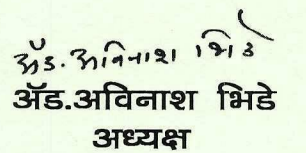 ॲड. अविनाश भिडे
ॲड.अविनाश भिडे
अध्यक्ष